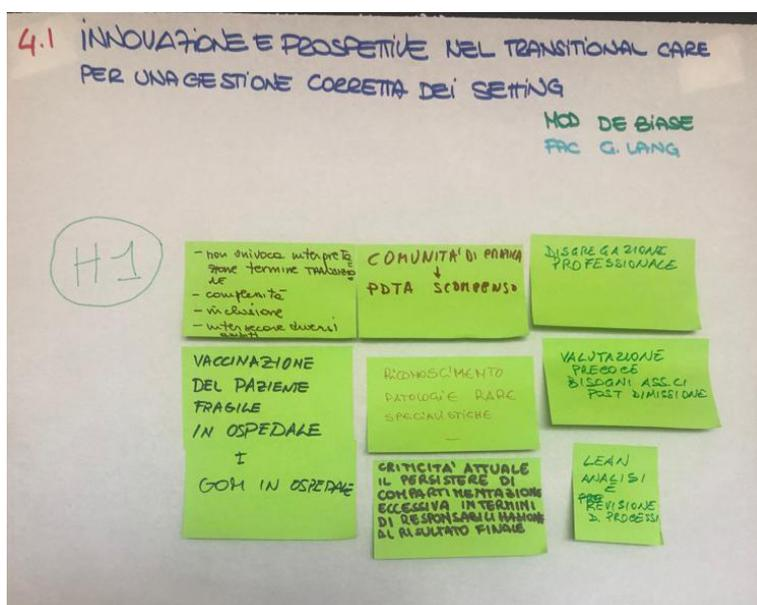 4.1 INNOVAZIONE E PROSPETTIVE NEL TRANSITIONAL CARE
PER UNA GESTIONE CORRETTA DEI SETTING
MOD DE BIASE
FAC G. LANG
H1
- non univoca interpreta
zione termine
- complessità
- inclusione
- intersecare diversi
ambiti
COMUNITA' DI PRATICA
↓
PDTA SCOMPENSO
DISGREGAZIONE
PROFESSIONALE
VACCINAZIONE
DEL PAZIENTE
FRAGILE
IN OSPEDALE
I
GOM IN OSPEDALE
RICONOSCIMENTO
PATOLOGIE RARE
SPECIALISTICHE
VALUTAZIONE
PRECOCE
BISOGNI ASS.CI
POST DIMISSIONE
CRITICITA' ATTUALE
IL PERSISTERE DI
COMPARTIMENTAZIONE
ECCESSIVA IN TERMINI
DI RESPONSABILIZZAZIONE
AL RISULTATO FINALE
LEAN
ANALISI
E
REVISIONE
D. PROCESSI